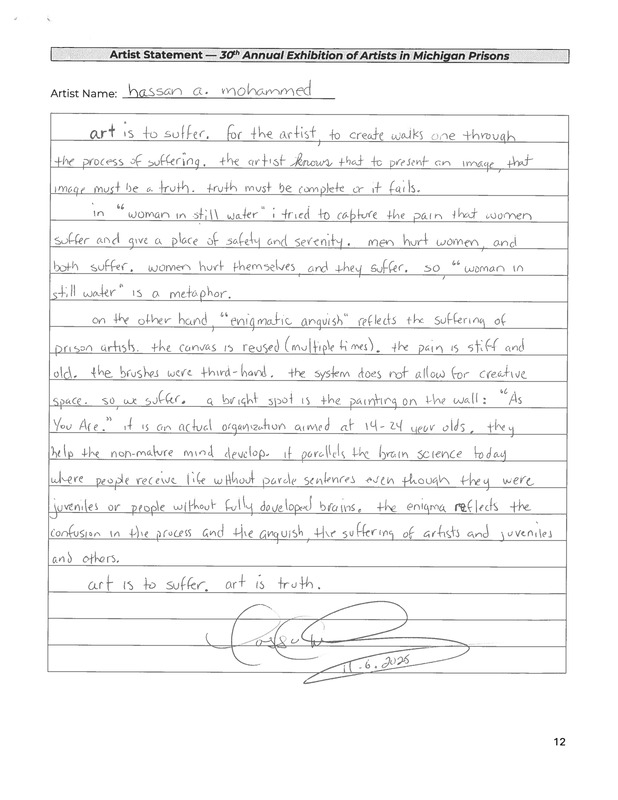 Artist Statement — 30th Annual Exhibition of Artists in Michigan Prisons
Artist Name: hassan a. mohammed
art is to suffer. for the artist, to create walks one through
the process of suffering. the artist knows that to present an image, that
image must be a truth. truth must be complete or it fails.
in "woman in still water" i tried to capture the pain that women
suffer and give a place of safety and serenity. men hurt women, and
both suffer. women hurt themselves, and they suffer. so, "woman in
still water" is a metaphor.
on the other hand, "enigmatic anguish" reflects the suffering of
prison artists. the canvas is reused (multiple times). the pain is stiff and
old. the brushes were third-hand. the system does not allow for creative
space. so, we suffer. a bright spot is the painting on the wall: "As
You Are." it is an actual organization aimed at 14-24 year olds. they
help the non-mature mind develop. it parallels the brain science today
where people receive life without parole sentences even though they were
juveniles or people without fully developed brains. the enigma reflects the
confusion in the process and the anguish, the suffering of artists and juveniles
and others.
art is to suffer. art is truth.
11.6.2025
12